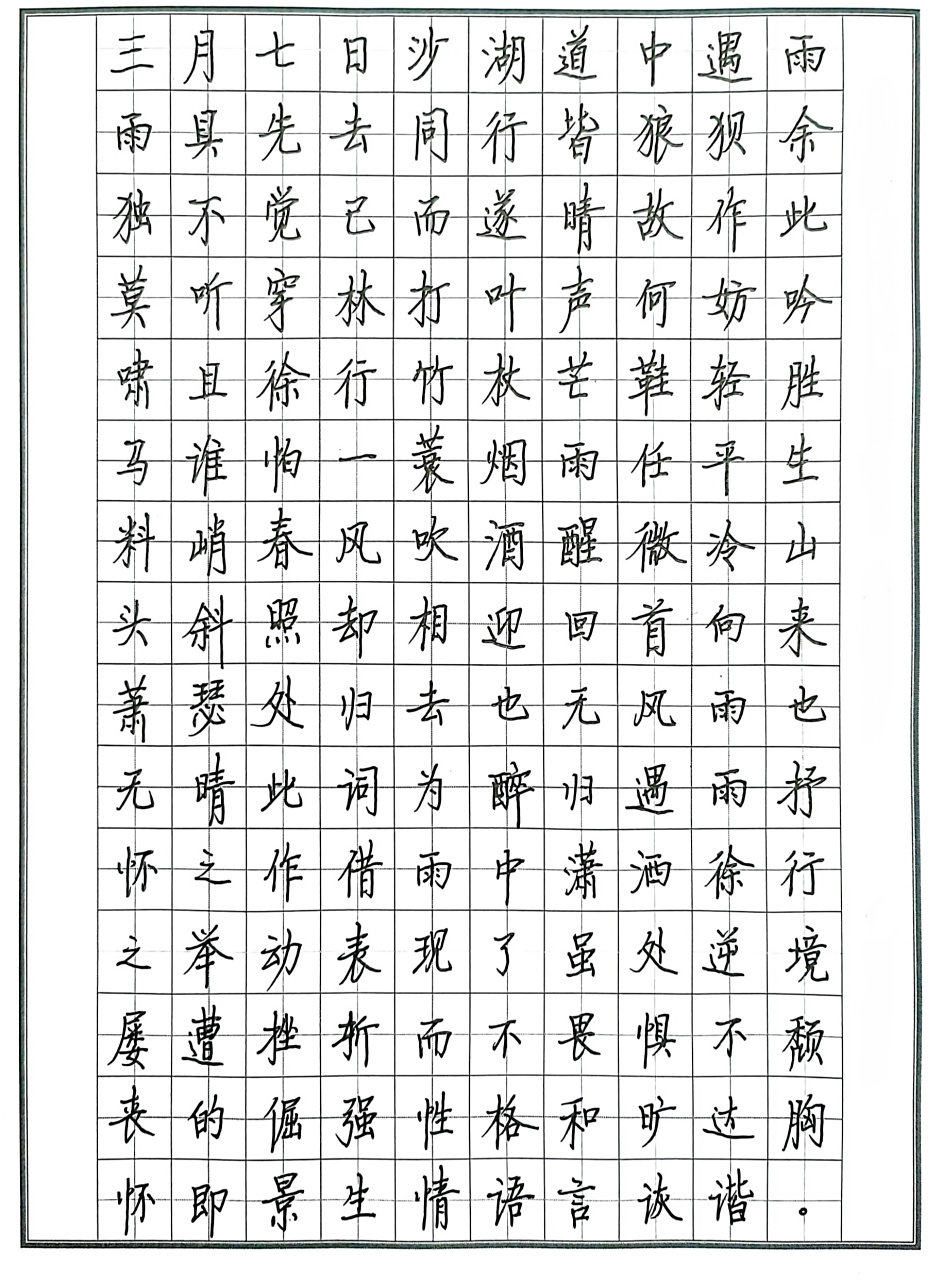 三月七日沙湖道中遇雨
雨具先去同行皆狼狈余
独不觉已而遂晴故作此
莫听穿林打叶声何妨吟
啸且徐行竹杖芒鞋轻胜
马谁怕一蓑烟雨任平生
料峭春风吹酒醒微冷山
头斜照却相迎回首向来
萧瑟处归去也无风雨也
无晴此词为醉归遇雨抒
怀之作借雨中潇洒徐行
之举动表现了虽处逆境
屡遭挫折而不畏惧不颓
丧的倔强性格和旷达胸
怀即景生情语言诙谐。